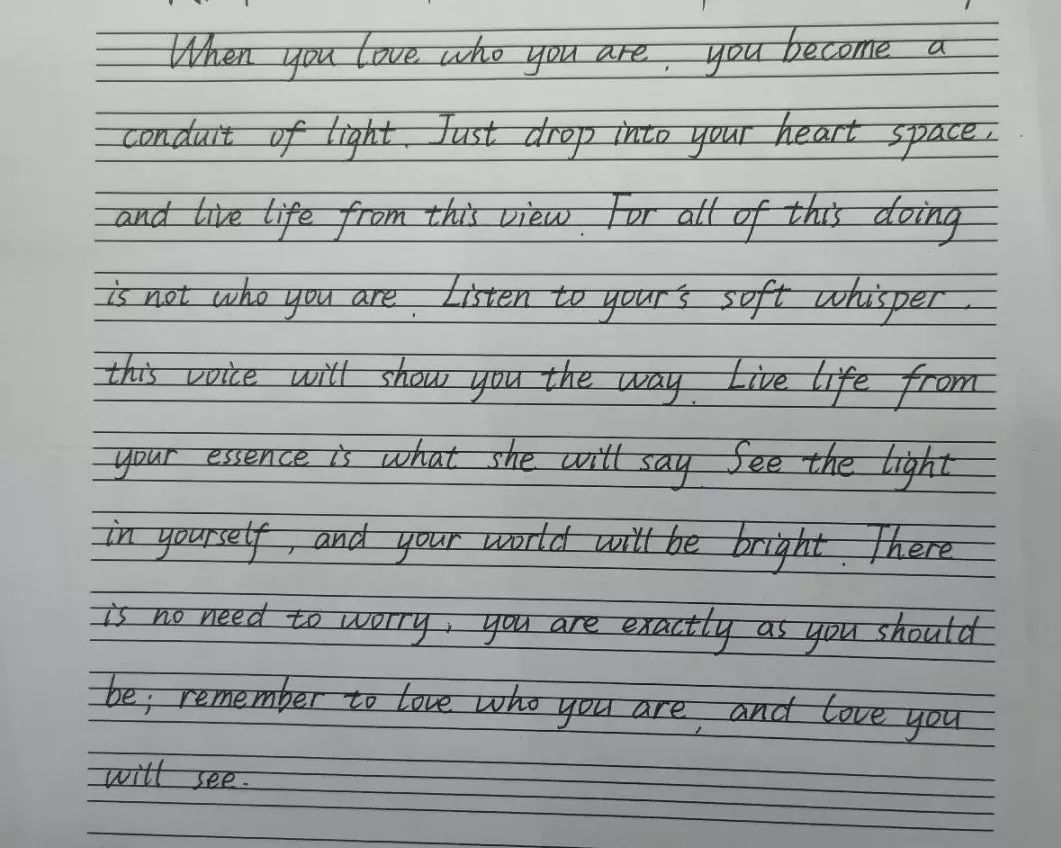 When you love who you are, you become a
conduit of light. Just drop into your heart space,
and live life from this view. For all of this doing
is not who you are. Listen to your's soft whisper,
this voice will show you the way. Live life from
your essence is what she will say. See the light
in yourself, and your world will be bright. There
is no need to worry, you are exactly as you should
be; remember to love who you are, and love you
will see.